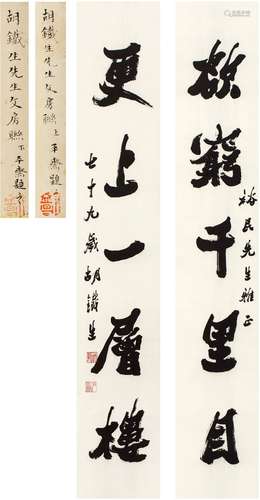 欲窮千里目
裕民先生雅正
更上一層樓
七十九歲胡鐵生
胡鐵生先生文房聯上
胡鐵生先生文房聯下